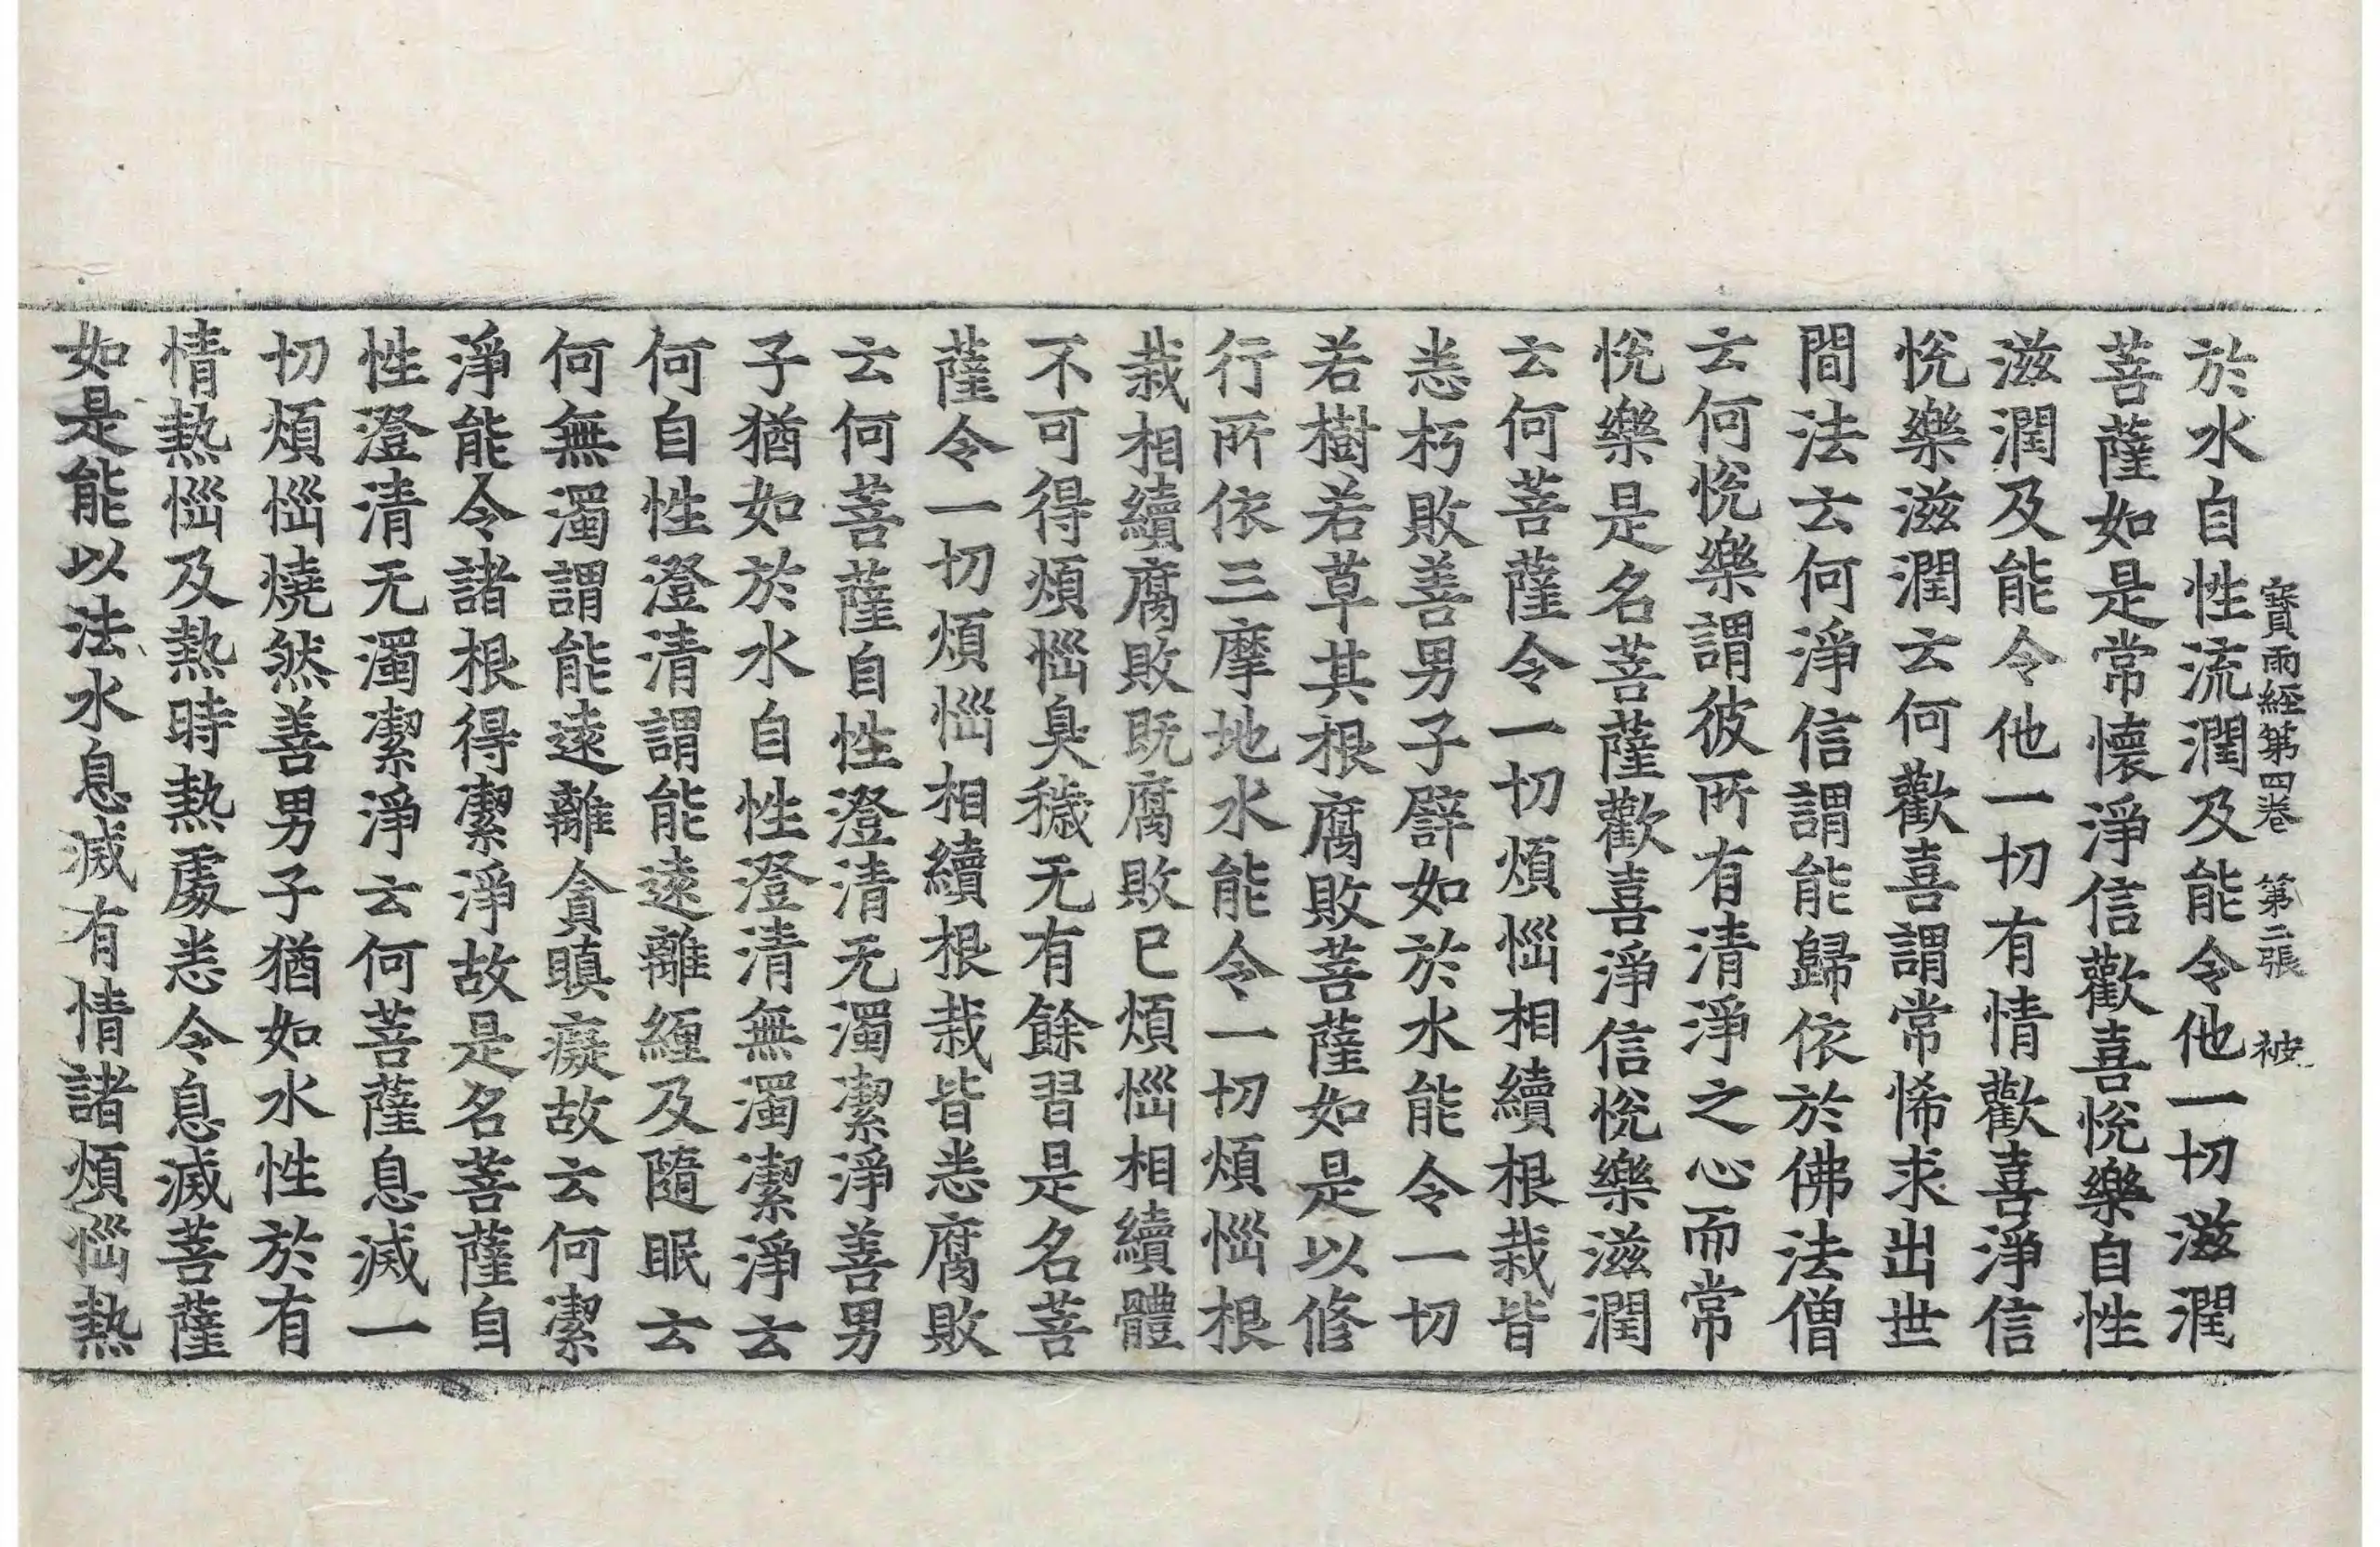 寶雨經第四卷 第二張 被
於水自性流潤及能令他一切滋潤
菩薩如是常懷淨信歡喜悅樂自性
滋潤及能令他一切有情歡喜淨信
悅樂滋潤云何歡喜謂常悕求出世
間法云何淨信謂能歸依於佛法僧
云何悅樂謂彼所有清淨之心而常
悅樂是名菩薩歡喜淨信悅樂滋潤
云何菩薩令一切煩惱相續根栽皆
悉朽敗善男子譬如於水能令一切
若樹若草其根腐敗菩薩如是以修
行所依三摩地水能令一切煩惱根
栽相續腐敗既腐敗已煩惱相續體
不可得煩惱臭穢无有餘習是名菩
薩令一切煩惱相續根栽皆悉腐敗
云何菩薩自性澄清无濁潔淨善男
子猶如於水自性澄清無濁潔淨云
何自性澄清謂能遠離纏及隨眠云
何無濁謂能遠離貪瞋癡故云何潔
淨能令諸根得潔淨故是名菩薩自
性澄清无濁潔淨云何菩薩息滅一
切煩惱燒然善男子猶如水性於有
情熱惱及熱時熱處悉令息滅菩薩
如是能以法水息滅有情諸煩惱熱